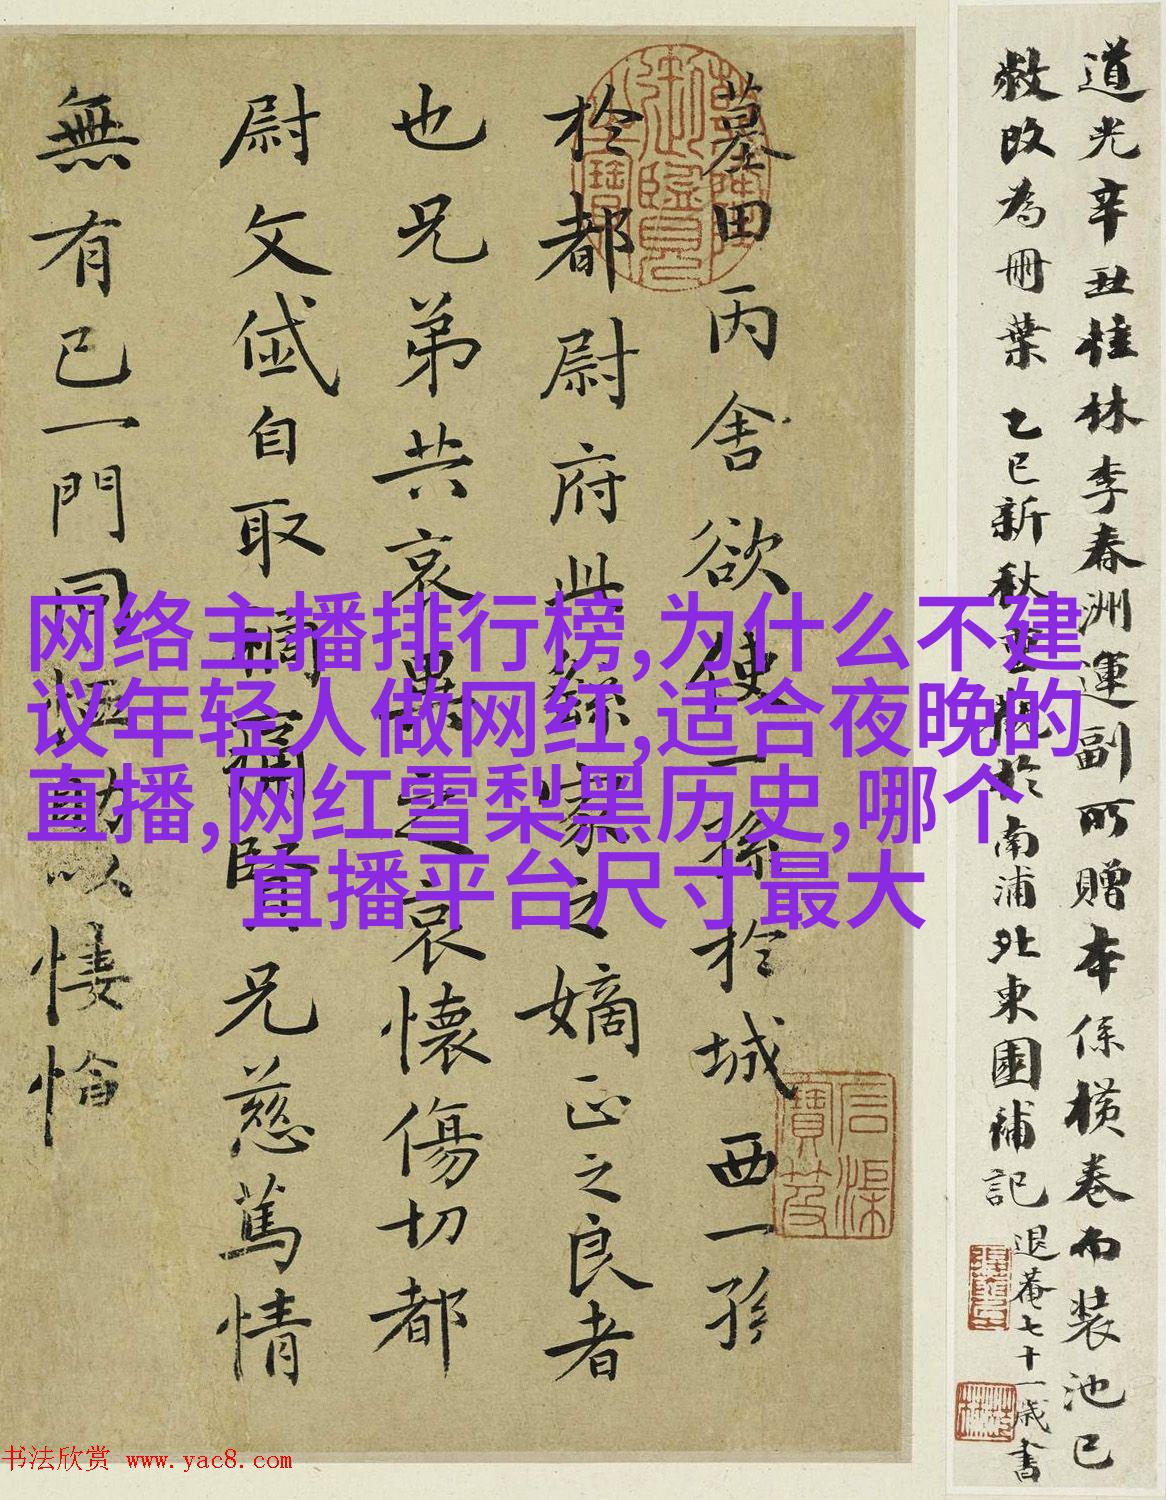 道光辛丑桂林李春洲運副所贈本係横卷而装池已
敝改為冊葉乙巳新秋於南浦北東園補記退菴七十一歲書
墓田丙舍欲使一孫於城西一孫
於都尉府此繇家之嫡正之良者
也兄弟共哀異之哀懷傷切都
尉文岱自取禍痛賢兄慈篤情
無有已一門同恤助以悽愴
网络主播排行榜,为什么不建
议年轻人做网红,适合夜晚的
直播,网红雪梨黑历史,哪个
直播平台尺寸最大
书法欣赏 www.yac8.com